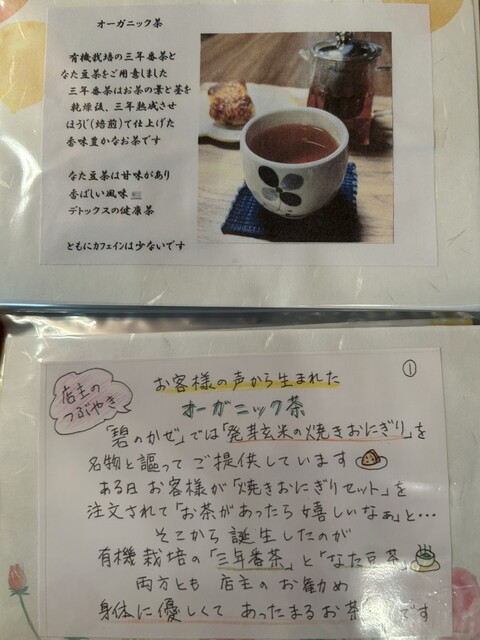 オーガニック茶
有機栽培の三年番茶と
なた豆茶をご用意しました
三年番茶はお茶の葉と茎を
乾燥後、三年熟成させ
ほうじ(焙煎)て仕上げた
香味豊かなお茶です
なた豆茶は甘味があり
香ばしい風味
デトックスの健康茶
ともにカフェインは少ないです
①
店主の
つぶやき
お客様の声から生まれた
オーガニック茶
「碧のかぜ」では「発芽玄米の焼きおにぎり」を
名物と謳ってご提供しています
ある日お客様が「焼きおにぎりセット」を
注文されて「お茶があったら嬉しいなぁ」と…
そこから誕生したのが
有機栽培の「三年番茶」と「なた豆茶」
両方とも店主のお勧め
身体に優しくてあったまるお茶です